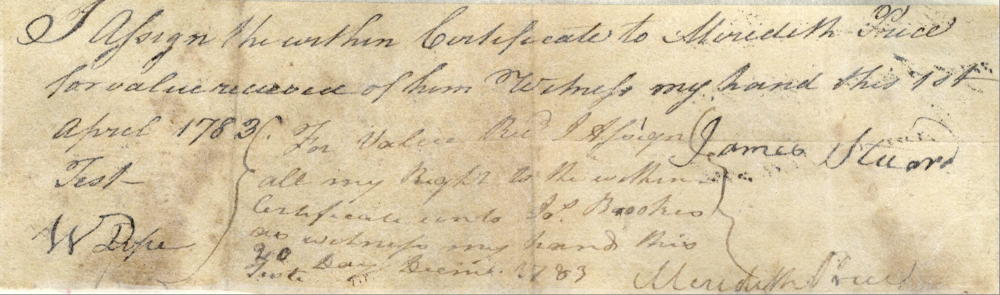 I Assign the within Certificate to Meredith Price
for value received of him Witness my hand this 1st
April 1783.
James Stuard
Test
W Pope
For Value Recd I Assign
all my Right to the within
Certificate unto Jos. Brookes
as witness my hand this
20 Day Decmr. 1783
Teste
Meredith Price